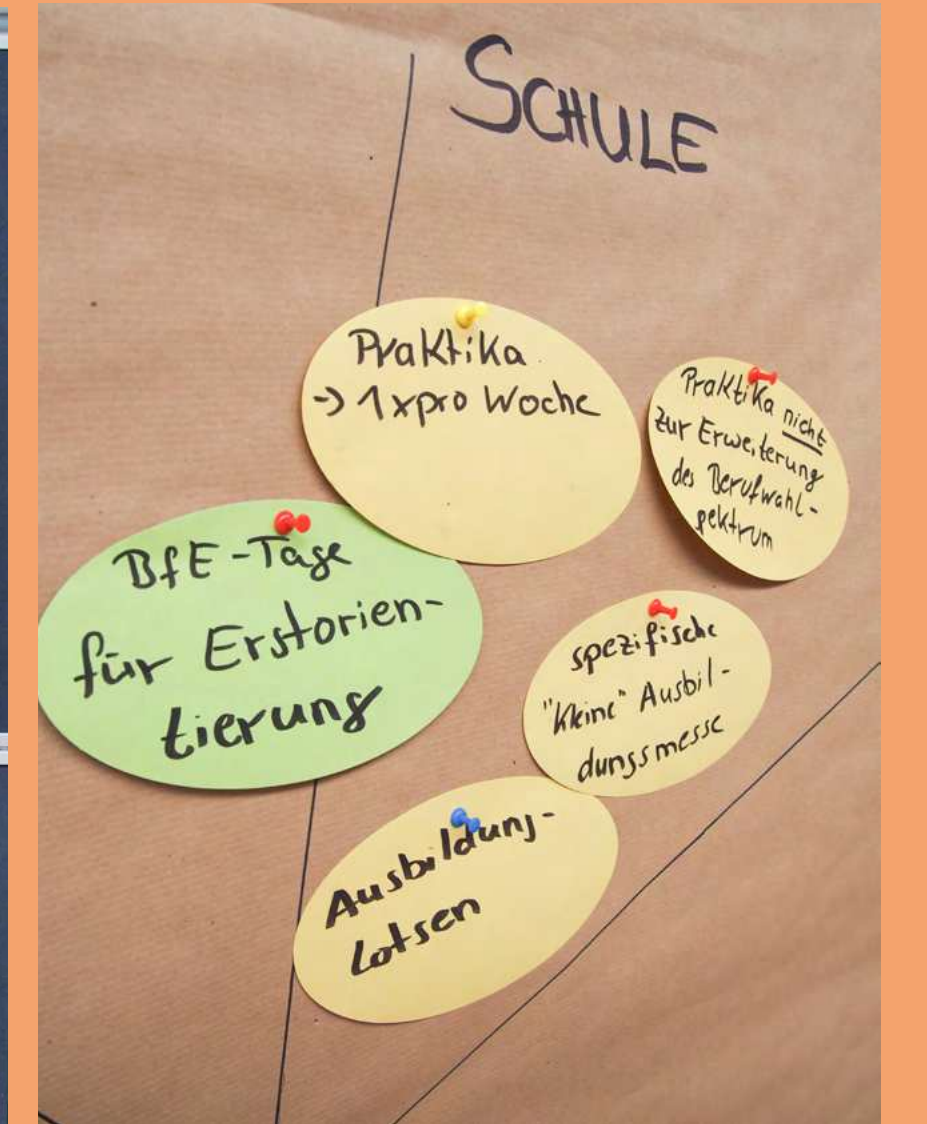 SCHULE
Praktika
-> 1x pro Woche
Praktika nicht
zur Erweiterung
des Berufwahl-
pektrum
BfE-Tage
für Erstorien-
tierung
spezifische
"kleine" Ausbil-
dungsmesse
Ausbildung-
Lotsen